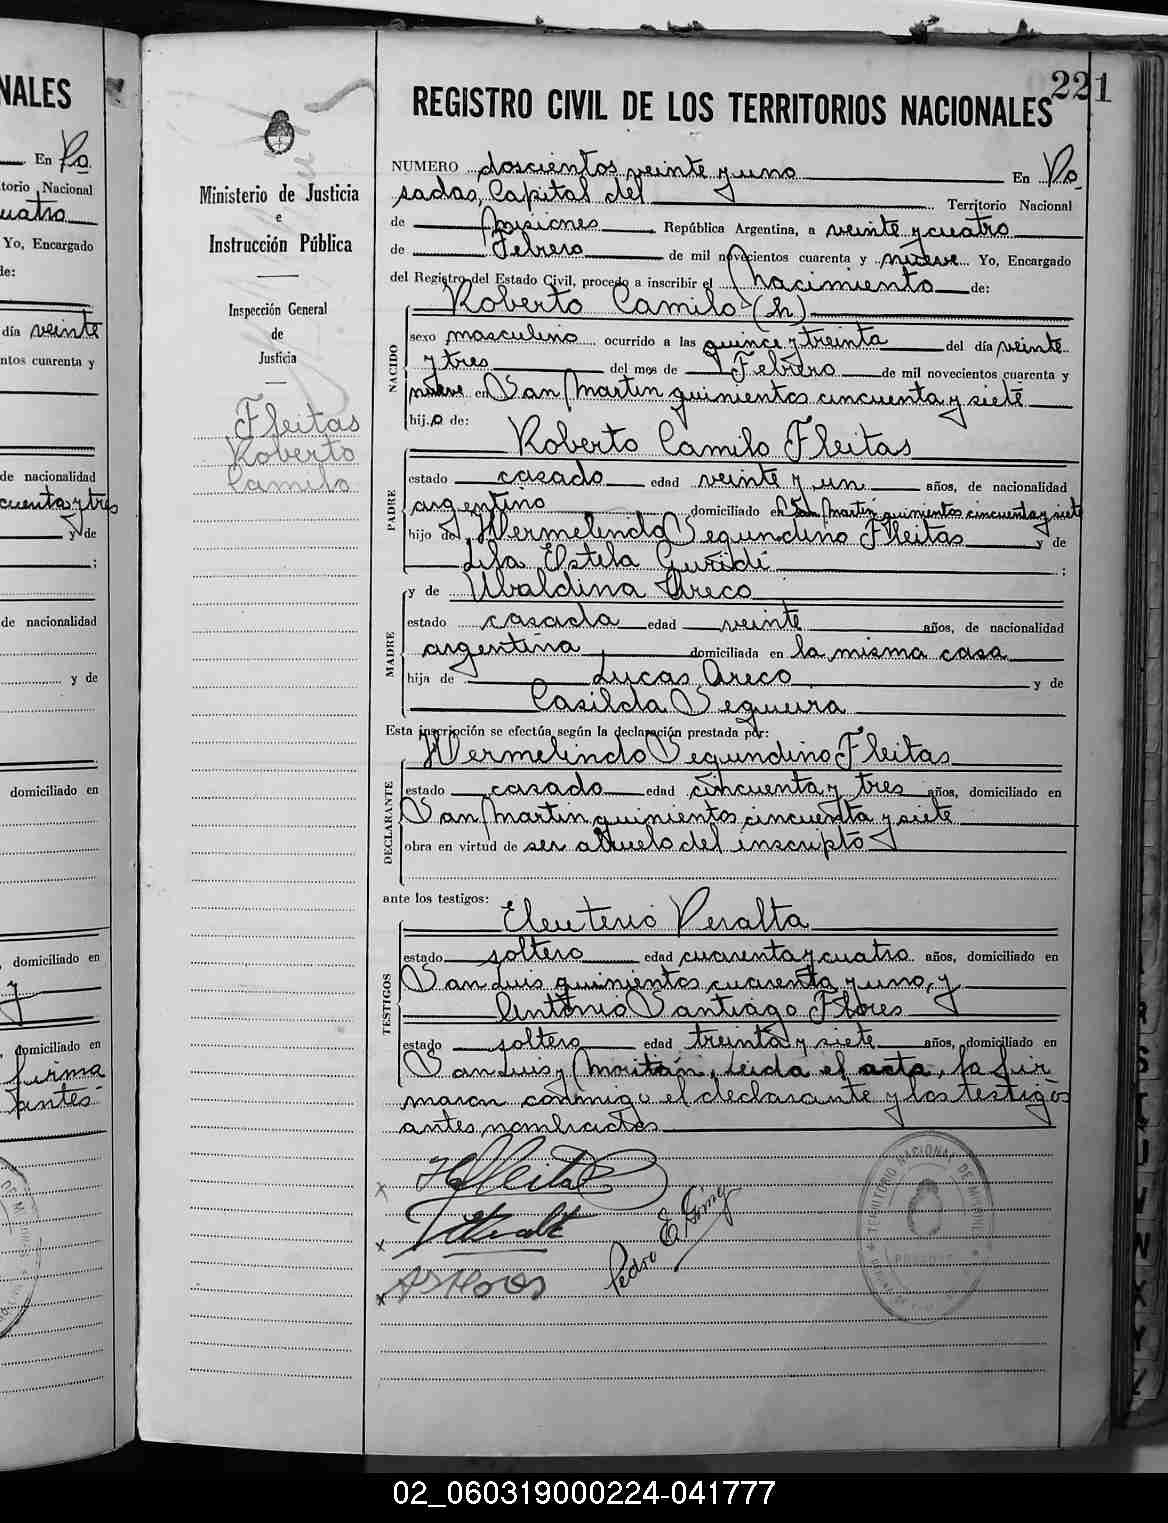 NALES
En Po
torio Nacional
uatro
Yo, Encargado
de:
día veinte
ntos cuarenta y
de nacionalidad
cuenta y tres
y de
;
de nacionalidad
y de
domiciliado en
, domiciliado en
y
, domiciliado en
firma
antes
221
REGISTRO CIVIL DE LOS TERRITORIOS NACIONALES
Ministerio de Justicia
e
Instrucción Pública
Inspección General
de
Justicia
Fleitas
Roberto
Camilo
NUMERO doscientos veinte y uno En Po
sadas, Capital del Territorio Nacional
de Misiones República Argentina, a veinte y cuatro
de Febrero de mil novecientos cuarenta y nueve Yo, Encargado
del Registro del Estado Civil, procedo a inscribir el Nacimiento de:
Roberto Camilo (h)
NACIDO
sexo masculino ocurrido a las quince y treinta del día veinte
y tres del mes de Febrero de mil novecientos cuarenta y
nueve en San Martin quinientos cincuenta y siete
hijo de:
Roberto Camilo Fleitas
PADRE
estado casado edad veinte y un años, de nacionalidad
argentino domiciliado en San Martin quinientos cincuenta y siete
hijo de Hermelindo Segundino Fleitas y de
Lila Estela Guridi ;
y de Ubaldina Areco
MADRE
estado casada edad veinte años, de nacionalidad
argentina domiciliada en la misma casa
hija de Lucas Areco y de
Casilda Segueira
Esta inscripción se efectúa según la declaración prestada por:
Hermelindo Segundino Fleitas
DECLARANTE
estado casado edad cincuenta y tres años, domiciliado en
San Martin quinientos cincuenta y siete
obra en virtud de ser abuelo del inscripto
ante los testigos:
Eleuterio Peralta
TESTIGOS
estado soltero edad cuarenta y cuatro años, domiciliado en
San Luis quinientos cuarenta y uno, y
Antonio Santiago Flores
estado soltero edad treinta y siete años, domiciliado en
San Luis y Moritán, Leida el acta, la fir
maron conmigo el declarante y los testigos
antes nombrados
HSFleitas
Pedro E.
TERRITORIO NACIONAL DE MISIONES
POSADAS
02_060319000224-041777